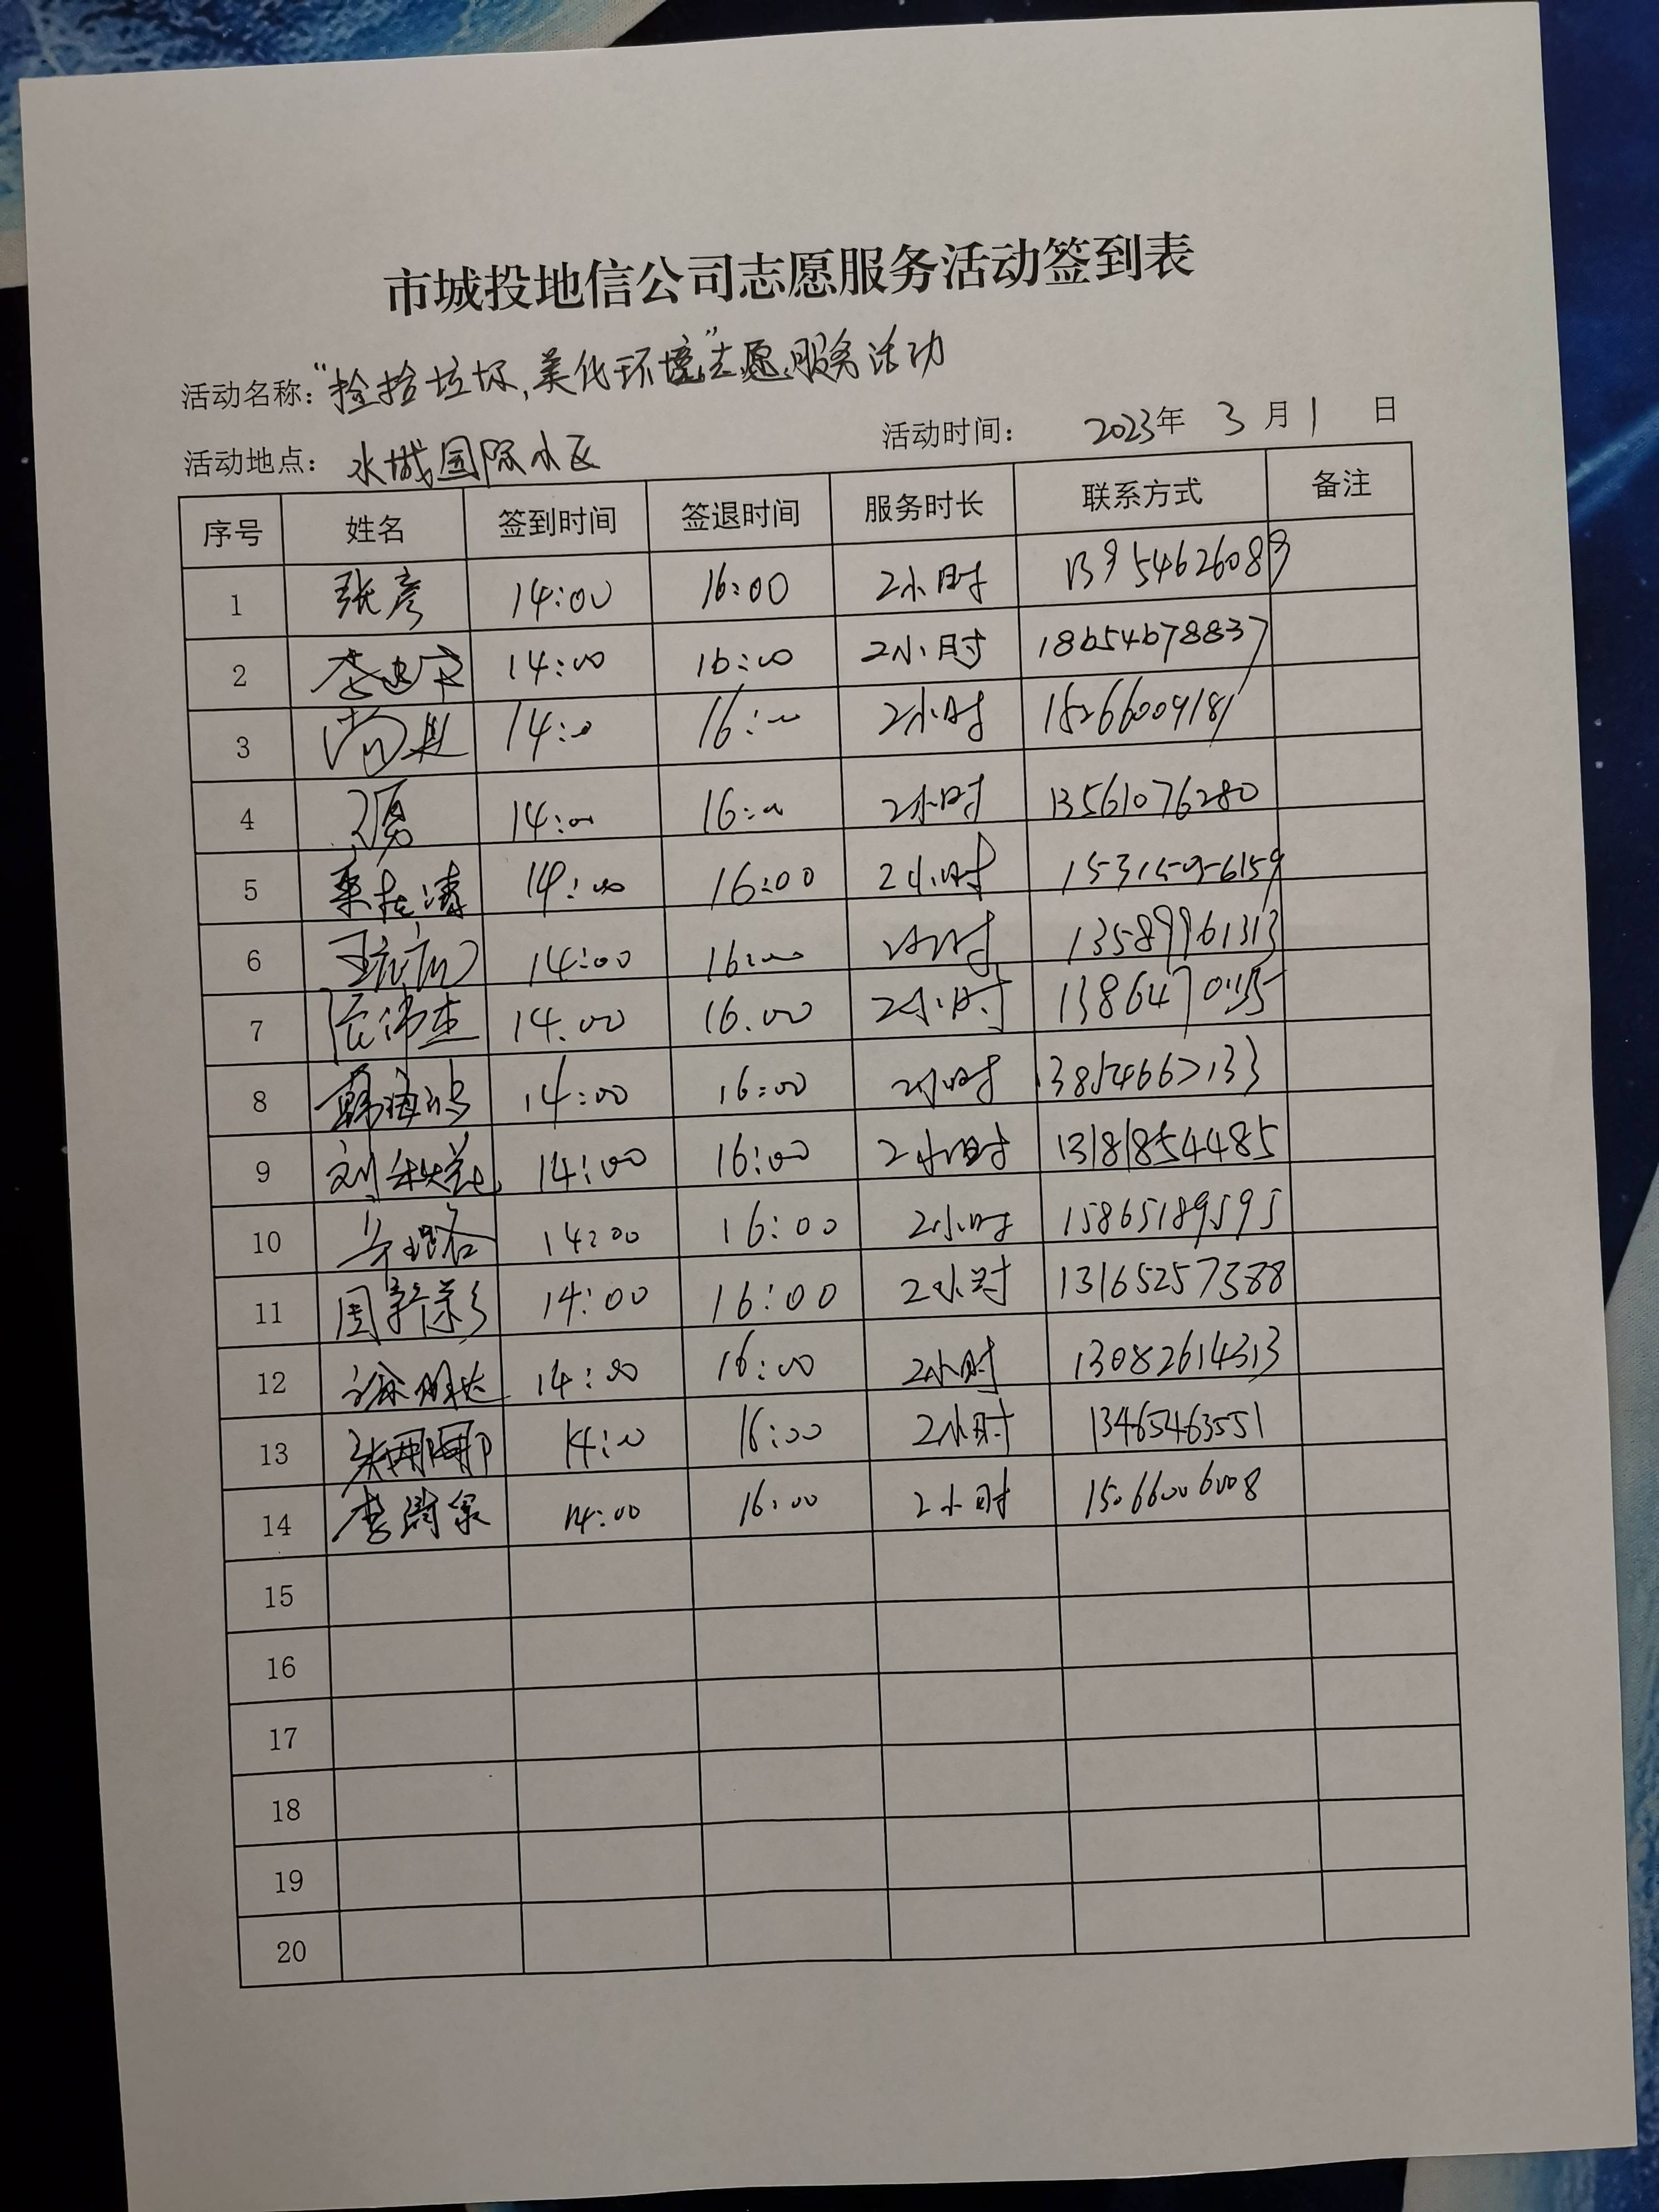 市城投地信公司志愿服务活动签到表
活动名称："捡拾垃圾,美化环境"志愿服务活动
活动地点：水城国际小区 活动时间： 2023年 3月1日
序号 姓名 签到时间 签退时间 服务时长 联系方式 备注
1 张彦 14:00 16:00 2小时
2 14:00 16:00 2小时 18654678837
3 14:00 16:00 2小时 15266009181
4 14:00 16:00 2小时 13561076280
5 14:00 16:00 2小时
6 14:00 16:00 2小时 13589961313
7 14:00 16:00 2小时
8 韩海鸣 14:00 16:00 2小时
9 14:00 16:00 2小时 13181854485
10 14:00 16:00 2小时 15865189595
11 周彩 14:00 16:00 2小时 13165257388
12 14:00 16:00 2小时 13082614313
13 14:00 16:00 2小时 13465463551
14 14:00 16:00 2小时 15066006008
15
16
17
18
19
20